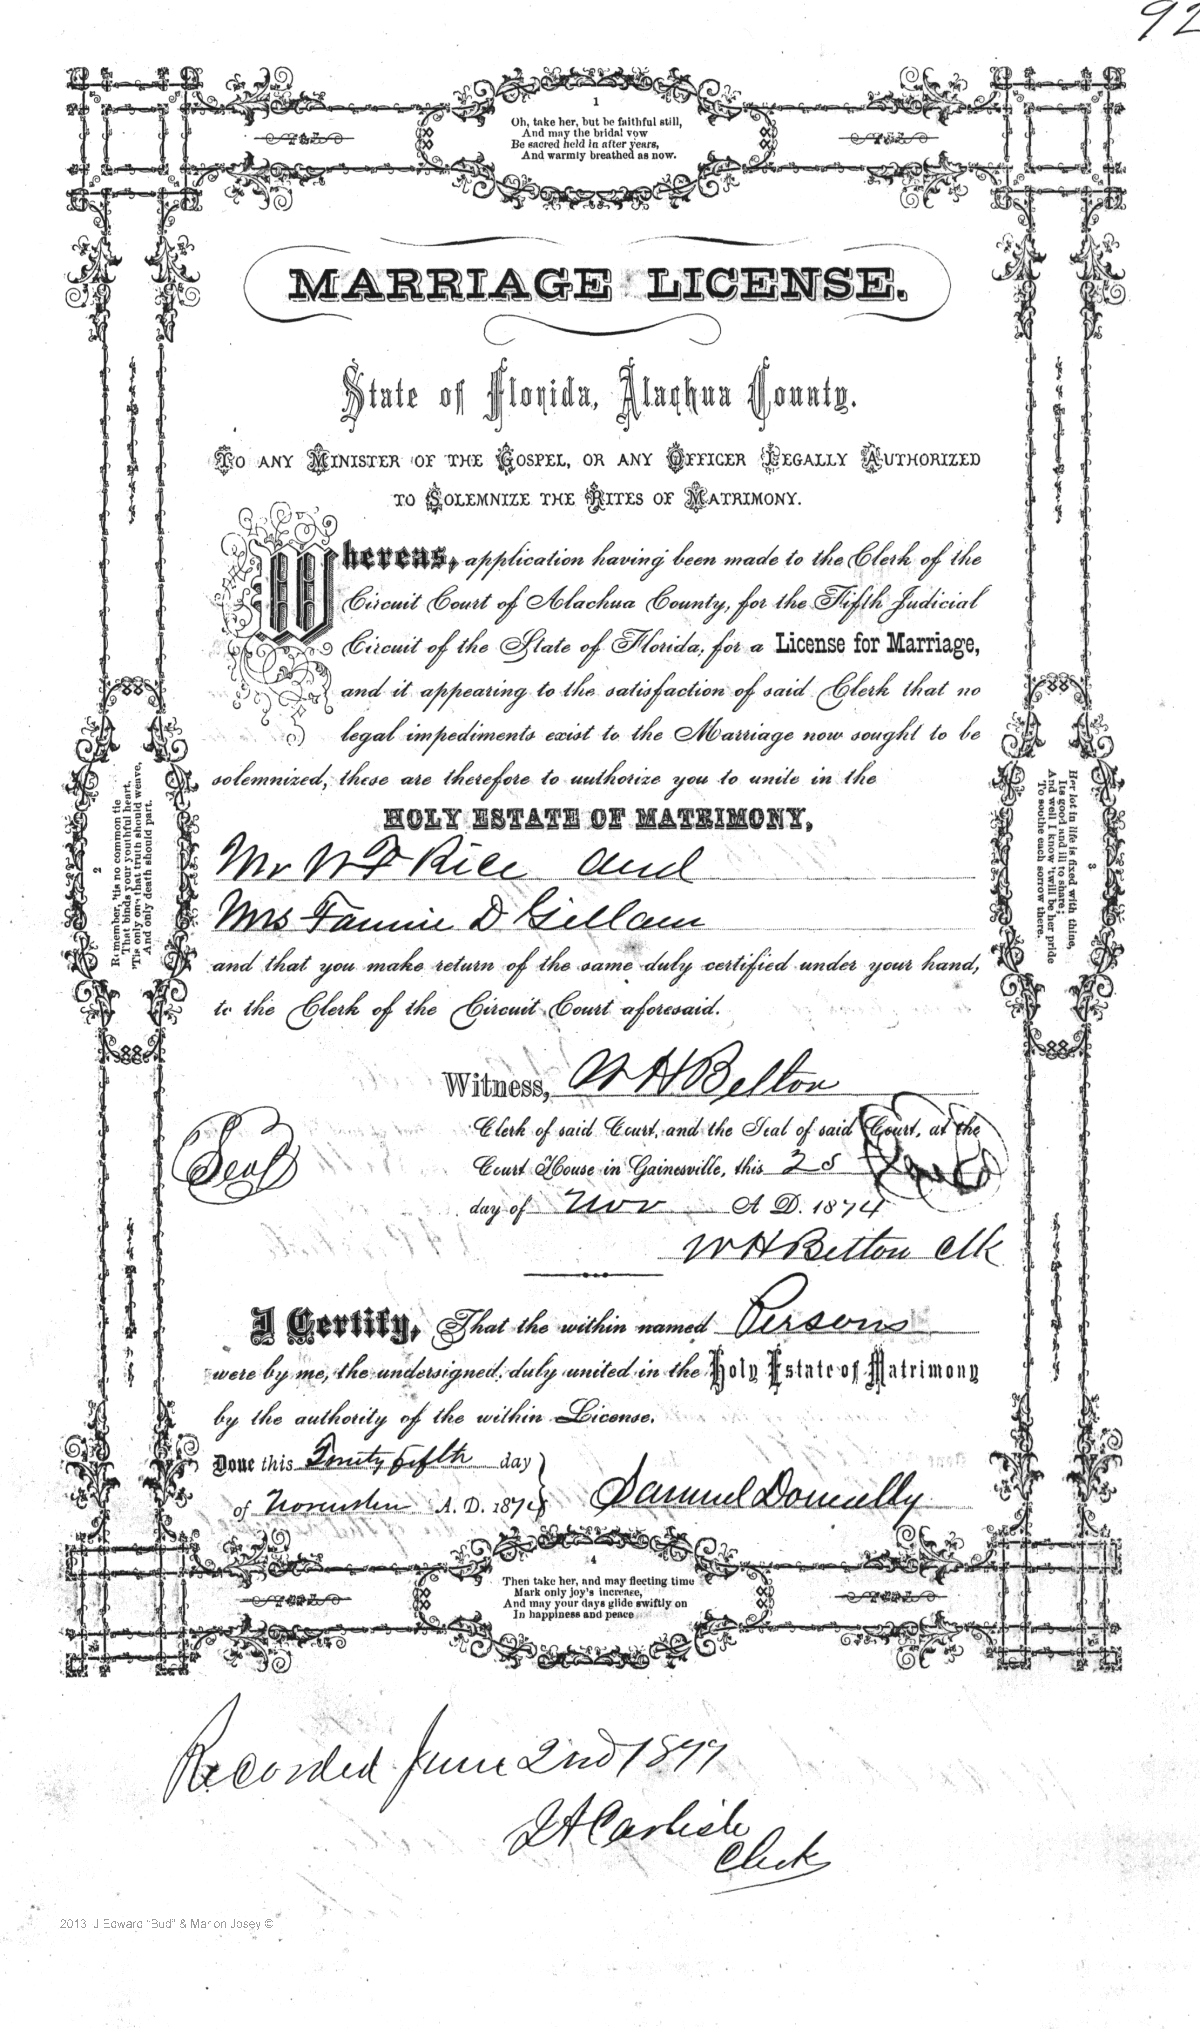 92
1
Oh, take her, but be faithful still,
And may the bridal vow
Be sacred held in after years,
And warmly breathed as now.
MARRIAGE LICENSE.
State of Florida, Alachua County.
TO ANY MINISTER OF THE GOSPEL, OR ANY OFFICER LEGALLY AUTHORIZED
TO SOLEMNIZE THE RITES OF MATRIMONY.
Whereas, application having been made to the Clerk of the
Circuit Court of Alachua County, for the Fifth Judicial
Circuit of the State of Florida, for a License for Marriage,
and it appearing to the satisfaction of said Clerk that no
legal impediments exist to the Marriage now sought to be
solemnized, these are therefore to authorize you to unite in the
HOLY ESTATE OF MATRIMONY,
Mr W F Rice and
Mrs Fannie D Gillam
and that you make return of the same duly certified under your hand,
to the Clerk of the Circuit Court aforesaid.
2
Remember, 'tis no common tie
That binds your youthful heart,
'Tis only one that truth should weave,
And only death should part.
3
Her lot in life is fixed with thine,
Its good and ill to share;
And well I know 'twill be her pride
To soothe each sorrow there.
Witness, W H Belton
Clerk of said Court, and the Seal of said Court, at the
Court House in Gainesville, this 25
day of Nov A D. 1874
Seal
W H Belton Clk
I Certify, That the within named Persons
were by me, the undersigned, duly united in the Holy Estate of Matrimony
by the authority of the within License.
Done this Twenty fifth day
of November A. D. 1874
Samuel Donnelly
4
Then take her, and may fleeting time
Mark only joy's increase,
And may your days glide swiftly on
In happiness and peace
Recorded June 2nd 1877
J A Carlisle
Clerk
2013 J Edward "Bud" & Marion Josey ©